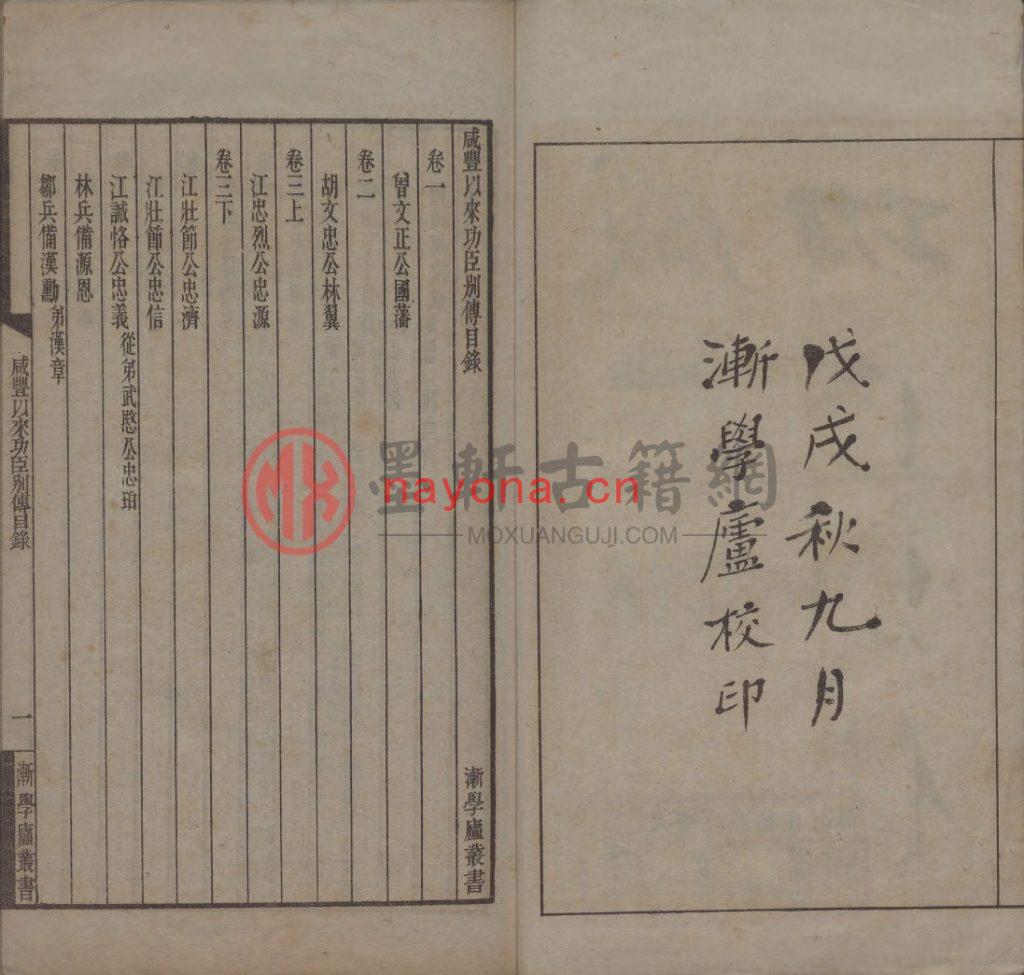 戊戌秋九月
漸學廬校印
咸豐以來功臣別傳目錄 漸學廬叢書
卷一
曾文正公國藩
卷二
胡文忠公林翼
卷三上
江忠烈公忠源
卷三下
江壯節公忠濟
江壯節公忠信
江誠恪公忠義 從弟武愍公忠珀
林兵備源恩
鄒兵備漢勳 弟漢章
咸豐以來功臣別傳目錄 一 漸學廬叢書
墨軒古籍網
nayona.cn
MOXUANGUJI.COM